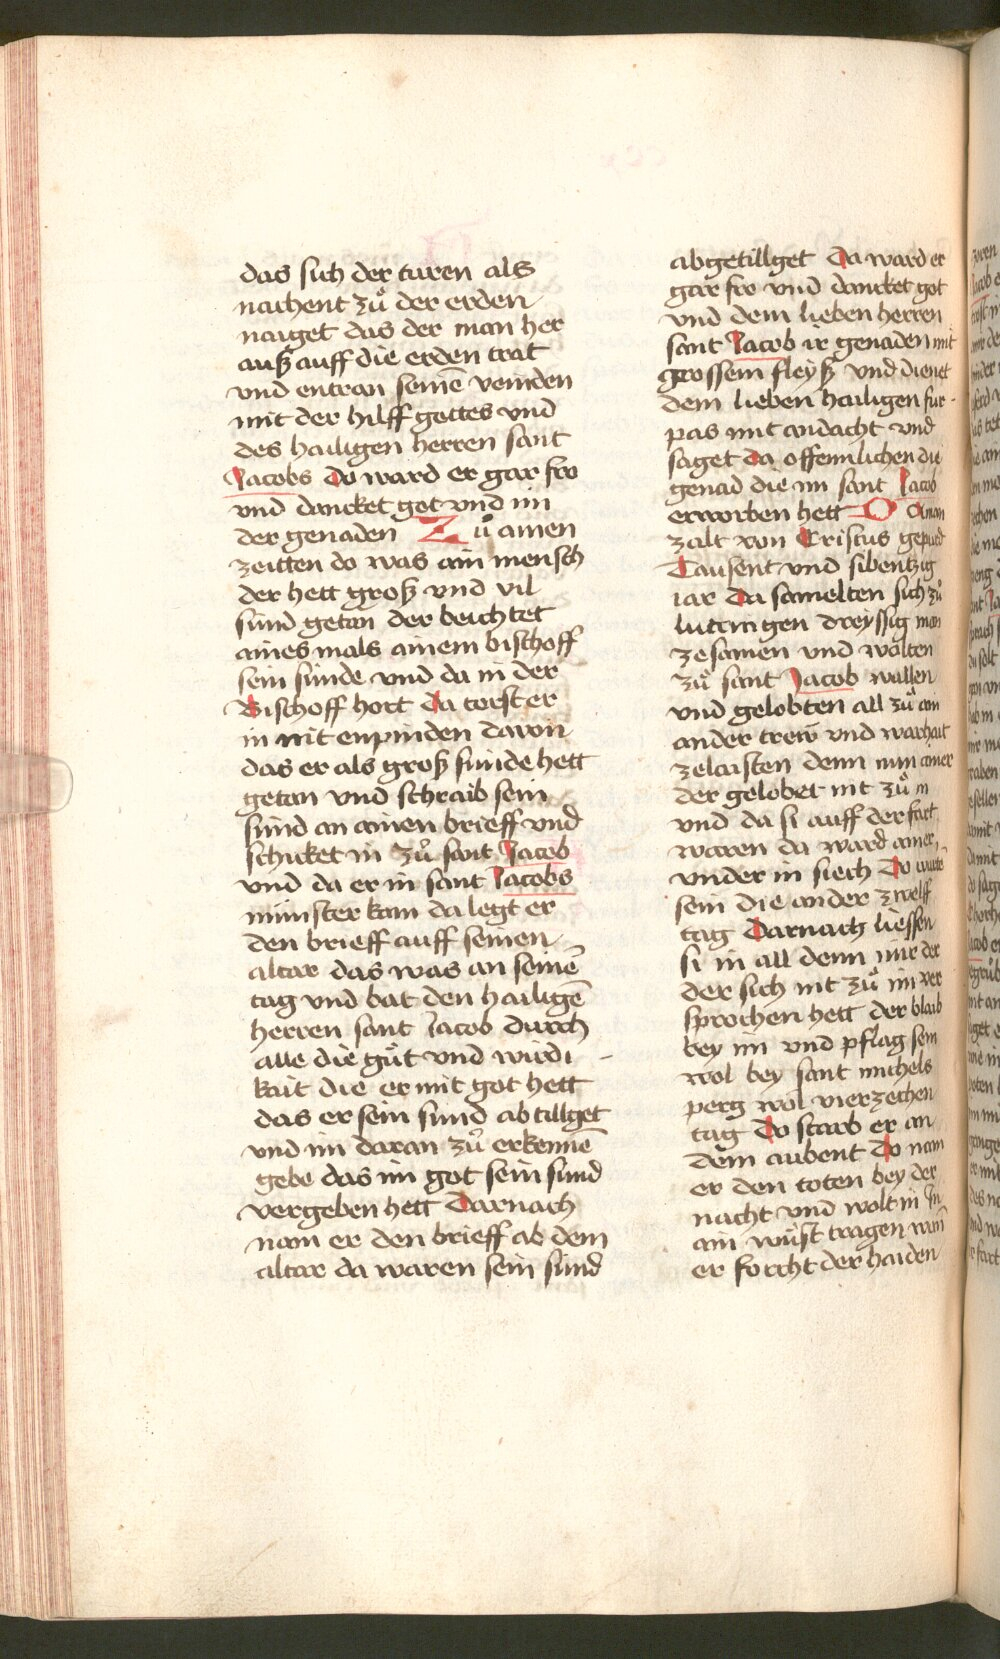 das sich der turen als
nachent zů der erden
naiget das der man her
auß auff die erden trat
vnd entran seinē veinden
mit der hilff gottes vnd
des hailigen herren sant
Jacobs Do ward er gar fro
vnd dancket got vnd im
der genaden Zů ainen
zeitten do was ain mensch
der hett groß vnd vil
sünd getan der beichtet
aines mals ainem bischoff
sein sünde vnd da in der
Bischoff hort Da torst er
in nit enpinden davon
das er als groß sünde hett
getan vnd schraib sein
sünd an ainen brieff vnd
schicket in zů sant Jacob
vnd da er in sant Jacobs
münster kam da legt er
den brieff auff seinen
altar das was an seinē
tag vnd bat den hailigē
herren sant Jacob durch
alle die gůt vnd wirdi
kait die er mit got hett
das er sein sünd abtillget
vnd im daran zů erkennē
gebe das im got sein sünd
vergeben hett Darnach
nam er den brieff ab dem
altar da waren sein sünd
abgetillget Da ward er
gar fro vnd dancket got
vnd dem lieben herren
sant Jacob ir genaden mit
grossem fleyß vnd dienet
dem lieben hailigen für
pas mit andacht vnd
saget da offennlichen die
genad die im sant Jacob
erworben hett Do man
zalt von Cristus gepurd
Tausent vnd sibentzig
iar Da samelten sich zů
luttringen dreyssig man
zesamen vnd wolten
zů sant Jacob wallen
vnd gelobten all zů ain
ander trew vnd warhait
zelaisten denn nun ainer
der gelobet nit zů in
vnd da si auff der fart
waren da ward ainer
vnder in siech Do
sein die ander zwelff
tag Darnach liessen
si in all denn nur der
der sich nit zů im ver
sprochen hett der blaib
bey im vnd pflag sein
wol bey sant michels
perg wol vierzechen
tag Do starb er an
dem aubent Do nam
er den toten bey der
nacht vnd wolt in in
ain wüst tragen wann
er forcht der haiden